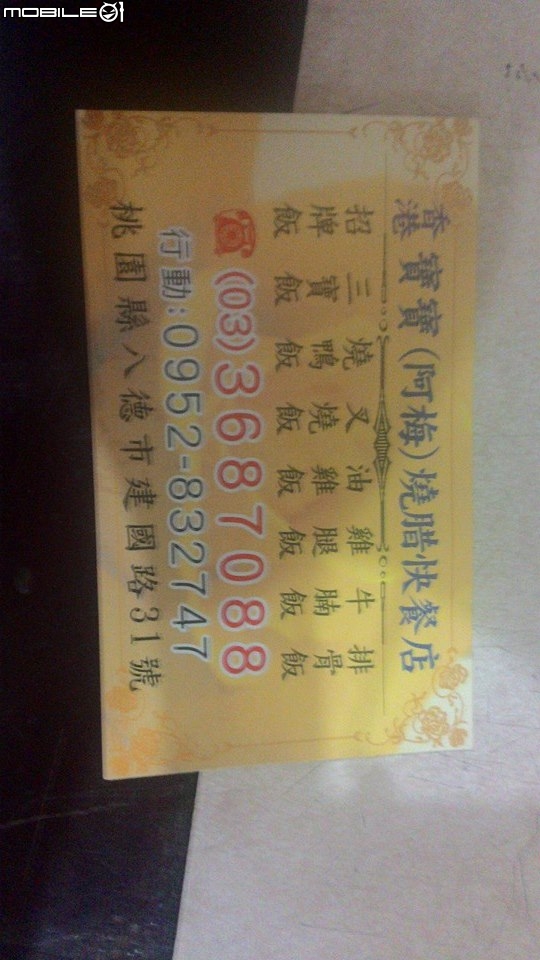 MOBILE01
香港寶寶(阿梅)燒腊快餐店
招牌飯
三寶飯
燒鴨飯
叉燒飯
油雞飯
雞腿飯
牛腩飯
排骨飯
(03)3687088
行動:0952-832747
桃園縣八德市建國路31號